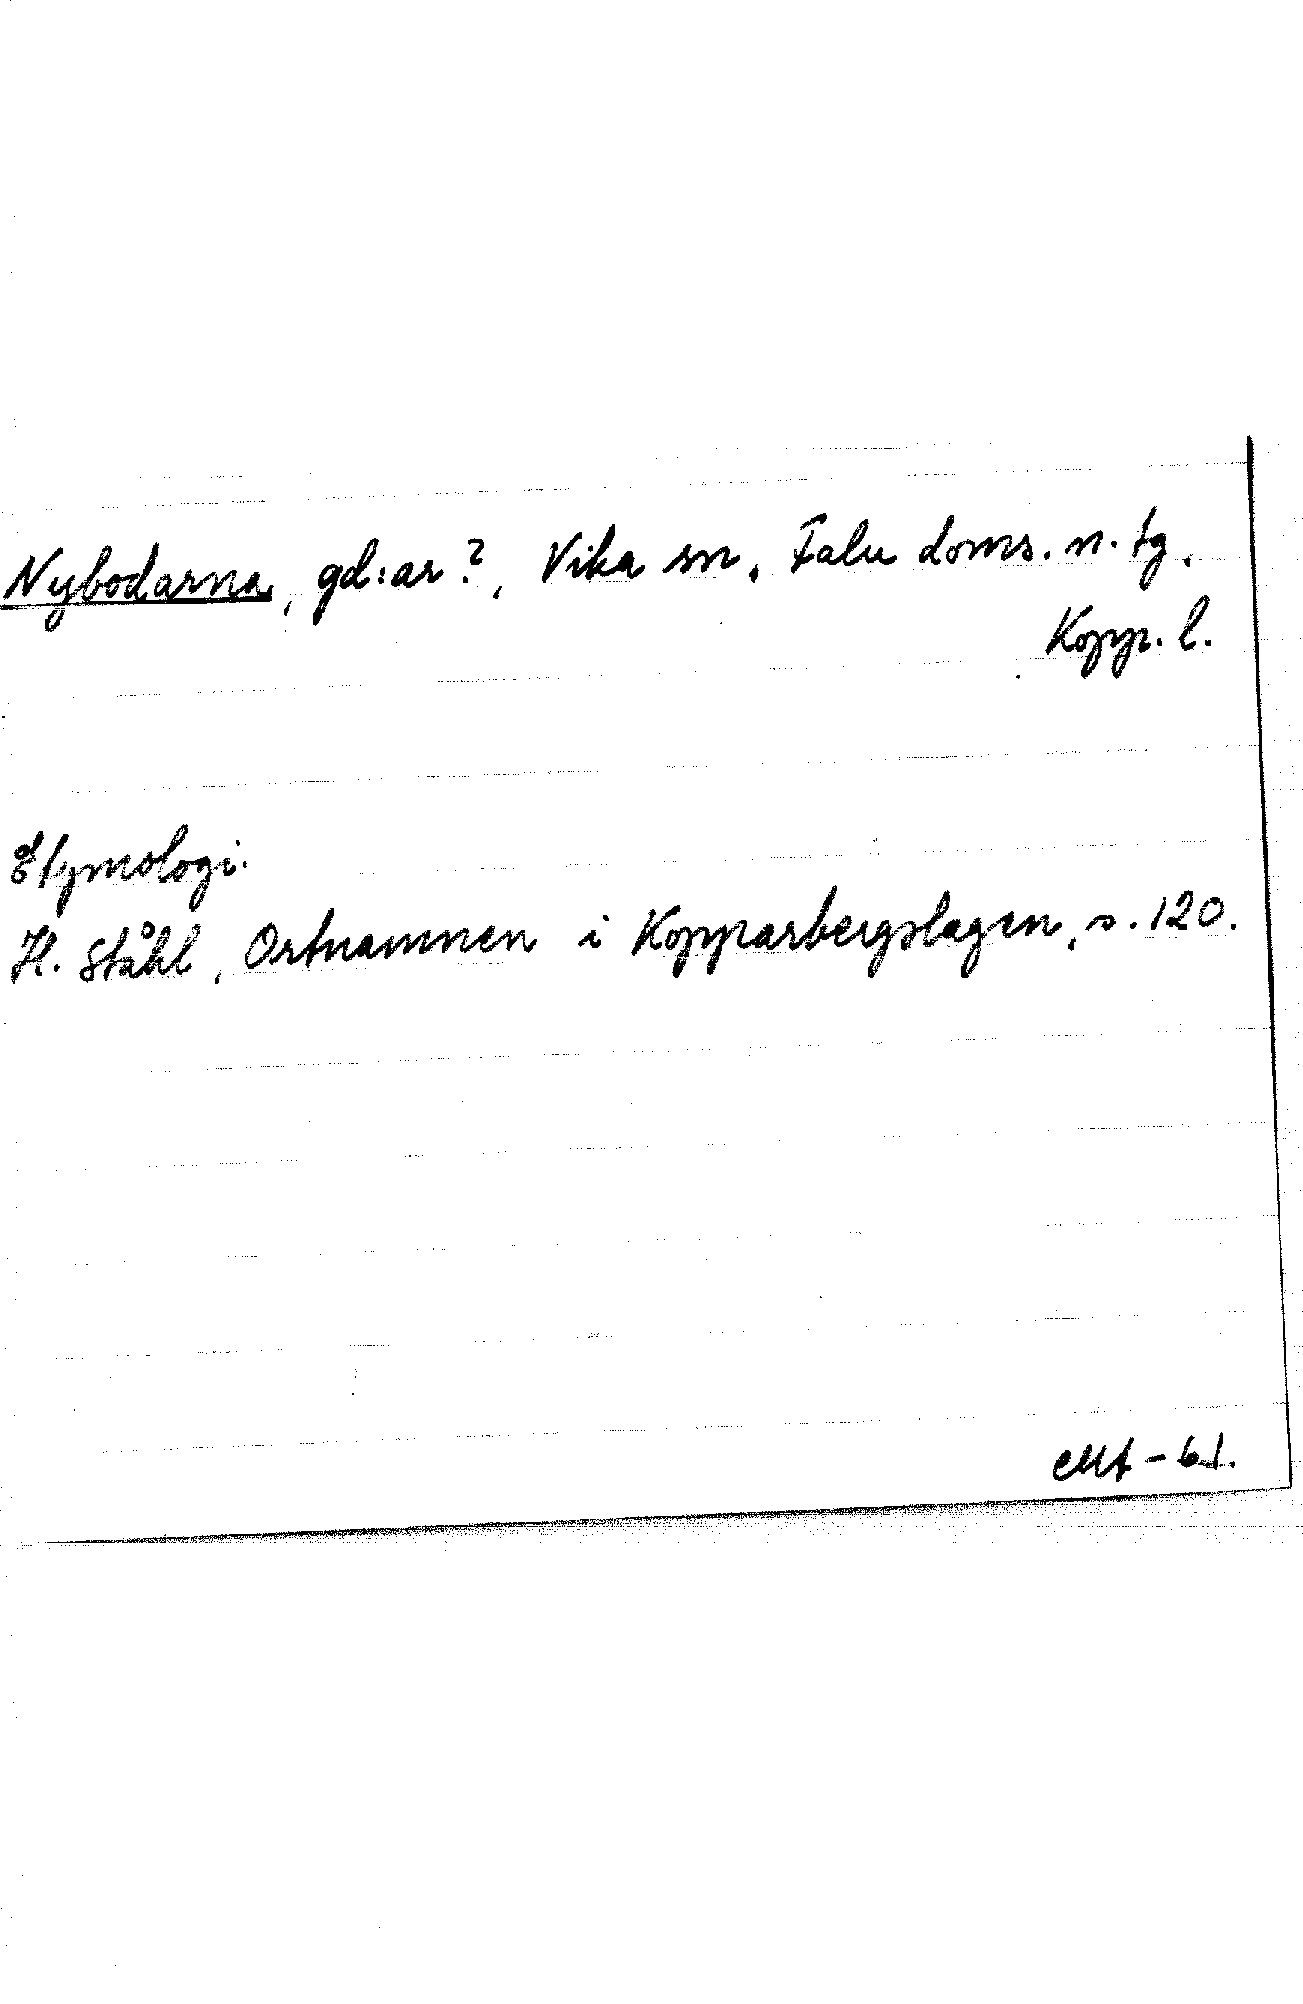 Nybodarna, gd:ar?, Vika sn, Falu doms. n. tg.
Kopp. l.
Etymologi.
H. Ståhl, Ortnamnen i Kopparbergslagen, s. 120.
-61.